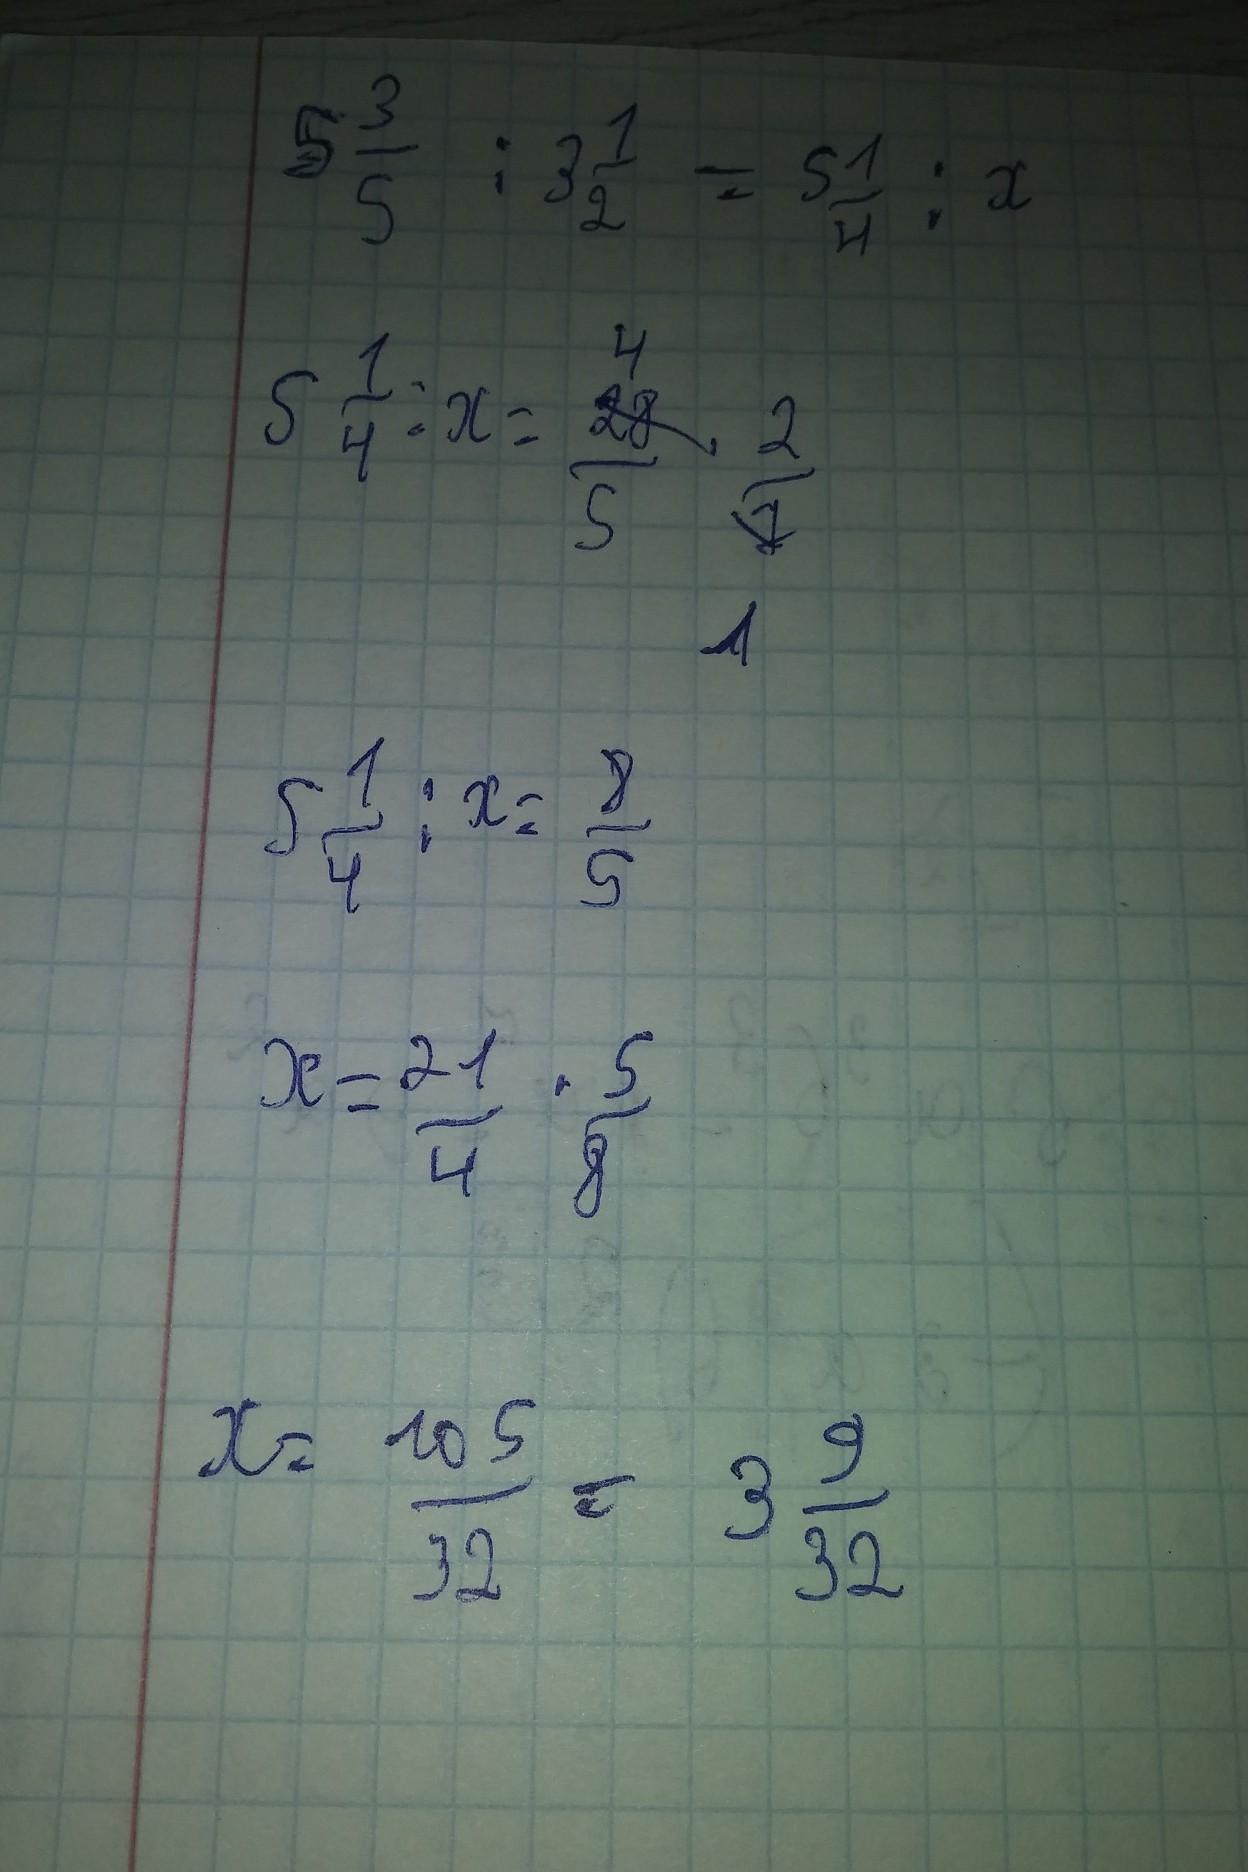 5 3/5 : 3 1/2 = 5 1/4 : x
5 1/4 : x = 4 28/5 · 2/7 1
5 1/4 : x = 8/5
x = 21/4 · 5/8
x = 105/32 = 3 9/32